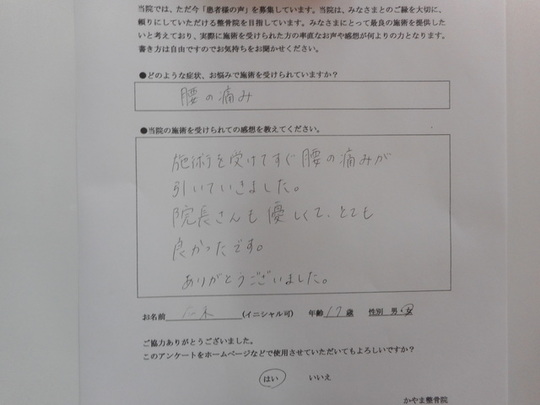 当院では、ただ今「患者様の声」を募集しています。当院は、みなさまとのご縁を大切に、
頼りにしていただける整骨院を目指しています。みなさまにとって最良の施術を提供した
いと考えており、実際に施術を受けられた方の率直なお声や感想が何よりの力となります。
書き方は自由ですのでお気持ちをお聞かせください。
●どのような症状、お悩みで施術を受けられていますか?
腰の痛み
●当院の施術を受けられての感想を教えてください。
施術を受けてすぐ腰の痛みが
引いていきました。
院長さんも優しくて、とても
良かったです。
ありがとうございました。
お名前 (イニシャル可) 年齢 17歳 性別 男・女
ご協力ありがとうございました。
このアンケートをホームページなどで使用させていただいてもよろしいですか?
はい いいえ
かやま整骨院